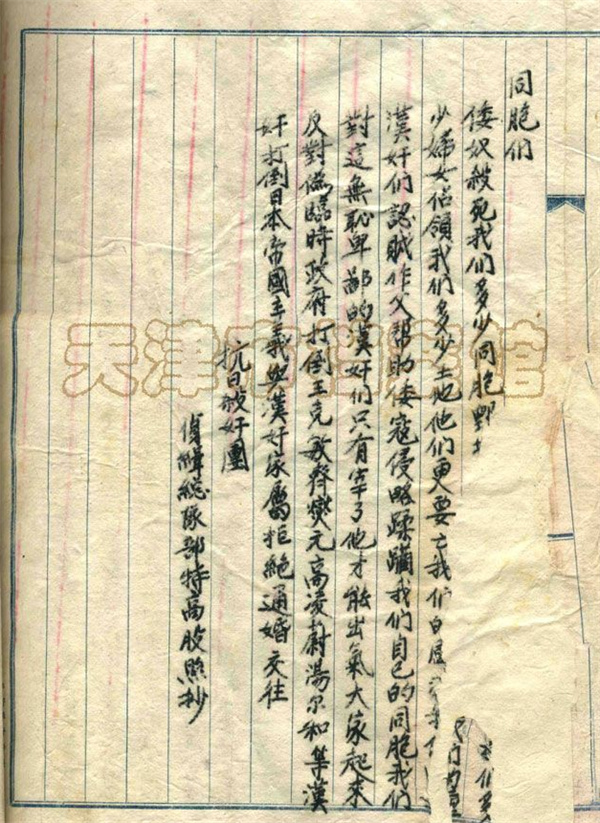 同胞们
倭奴殺死我们多少同胞
少婦女佔領我们多少土地他们更要亡我们
漢奸们認賊作父帮助倭寇侵略蹂躪我们自己的同胞我们
對這無恥卑鄙的漢奸们只有宰了他才能出氣大家起來
反對偽臨時政府打倒王克敏齊燮元高凌蔚湯尔和等漢
奸打倒日本帝國主義與漢奸家屬拒絶通婚交往
抗日殺奸團
偵緝総隊部特高股照抄
天津市档案馆